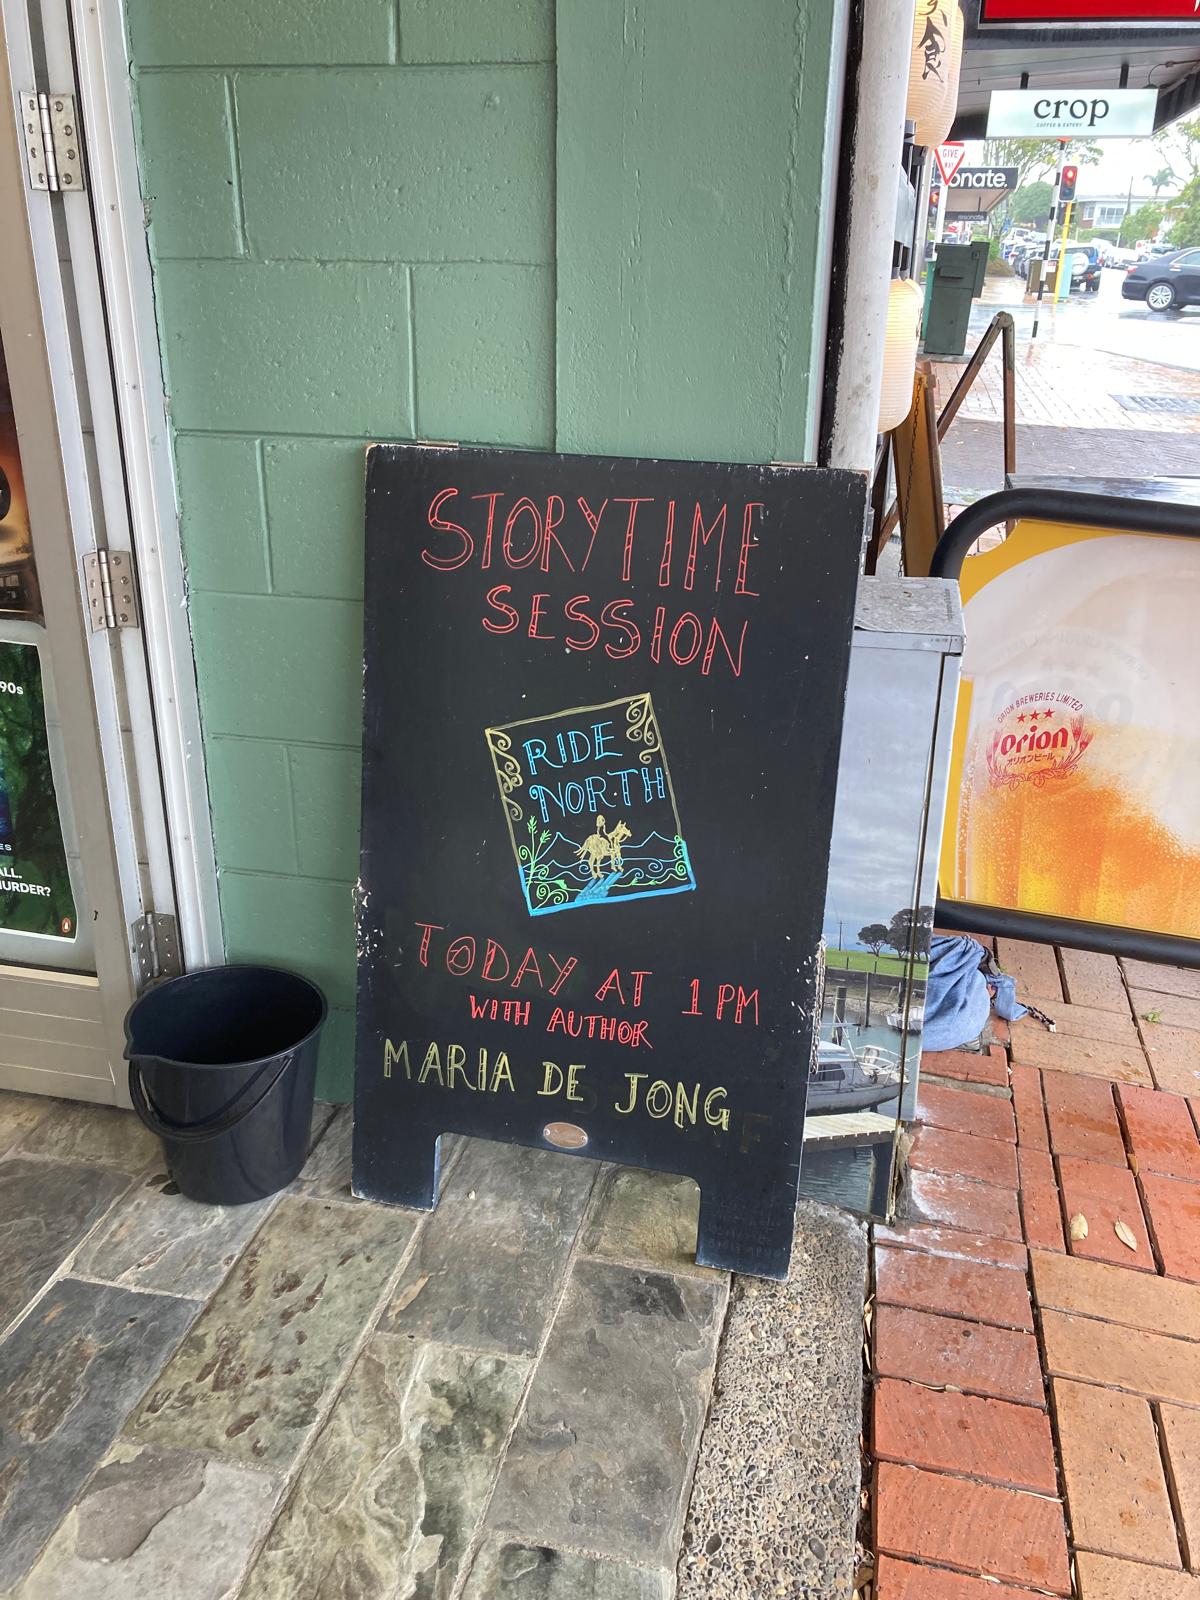 STORYTIME
SESSION
RIDE
NORTH
TODAY AT 1PM
WITH AUTHOR
MARIA DE JONG
食
crop
COFFEE & EATERY
GIVE
WAY
onate.
resonate
ORION BREWERIES LIMITED
Orion
オリオンビール
90s
ES
ALL.
MURDER?